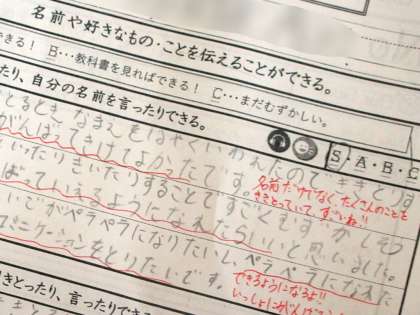 名前や好きなもの・ことを伝えることができる。
できる! B…教科書を見ればできる! C…まだむずかしい。
たり、自分の名前を言ったりできる。
S・A・B・C
とるとき なまえをはやくいわれたのでききとりず
がんばってきけてなかったです。
いったりきいたりすることですごくむずかしそう
ばっていえるようになれたらいいと思いました。
いごがペラペラになりたいし、ペラペラになれた
コミニケーションをとりたいです。
名前だけでなく、たくさんのことを
ききとっていて、すごいね!!
できるようになるよ!!
いっしょにがんば
きとったり、言ったりできる。